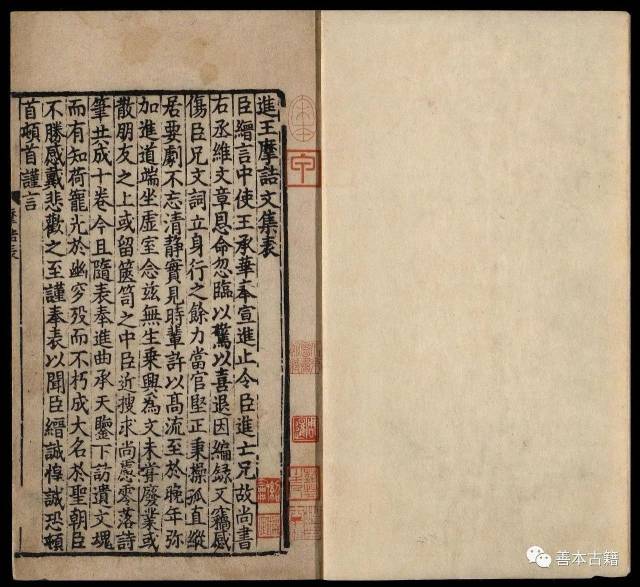 進王摩詰文集表
臣縉言中使王承華奉宣進止令臣進亡兄故尚書
右丞維文章恩命忽臨以驚以喜退因編錄又竊感
傷臣兄文詞立身行之餘力當官堅正秉操孤直縱
居要劇不忘清静實見時輩許以髙流至於晚年弥
加進道端坐虚室念兹無生乗興為文未甞廢業或
散朋友之上或留篋笥之中臣近搜求尚慮零落詩
筆共成十卷今且隨表奉進曲承天鑒下訪遺文魂
而有知荷寵光於幽穸殁而不朽成大名於聖朝臣
不勝感戴悲歡之至謹奉表以聞臣縉誠惶誠恐頓
首頓首謹言
善本古籍